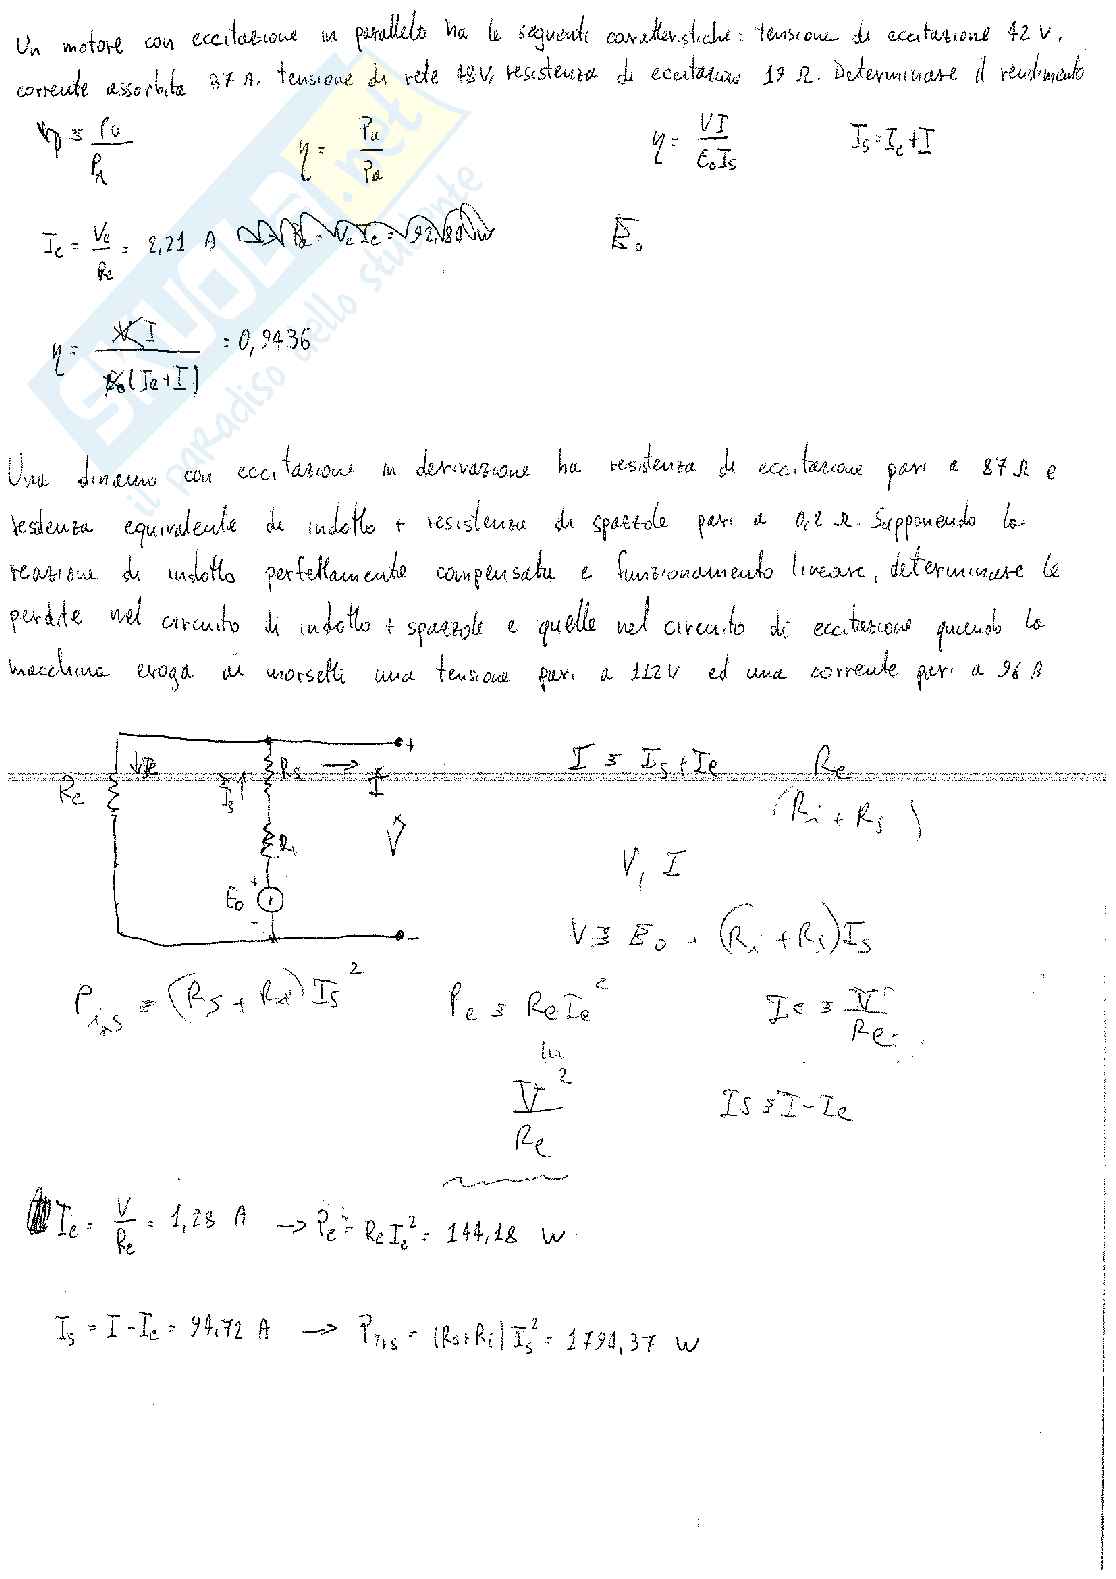 Un motore con eccitazione in parallelo ha le seguenti caratteristiche: tensione di eccitazione 42 V,
corrente assorbita 37 A, tensione di rete 48V, resistenza di eccitazione 19 Ω. Determinare il rendimento
η = Pu / Pa
η = VI / E₀Is
Is = Ie + I
Ie = Ve / Re = 2,21 A
E₀
η = VI / E₀(Ie+I) = 0,9436
SKUOLA.net
il paradiso dello studente
Una dinamo con eccitazione in derivazione ha resistenza di eccitazione pari a 87 Ω e
resistenza equivalente di indotto + resistenza di spazzole pari a 0,2 Ω. Supponendo la
reazione di indotto perfettamente compensata e funzionamento lineare, determinare le
perdite nel circuito di indotto + spazzole e quelle nel circuito di eccitazione quando la
macchina eroga ai morsetti una tensione pari a 112V ed una corrente pari a 96 A
Re Ie Is Rs I +
Ri V
E₀ + - -
I = Is + Ie
Re
(Ri + Rs)
V, I
V = E₀ - (Ri + Ri)Is
Pins = (Rs + Ri) Is²
Pe = Re Ie²
Ie = V / Re
V² / Re
Is = I - Ie
Ie = V / Re = 1,28 A → Pe = Re Ie² = 144,18 W
Is = I - Ie = 94,72 A → Pins = (Rs+Ri) Is² = 1794,37 W